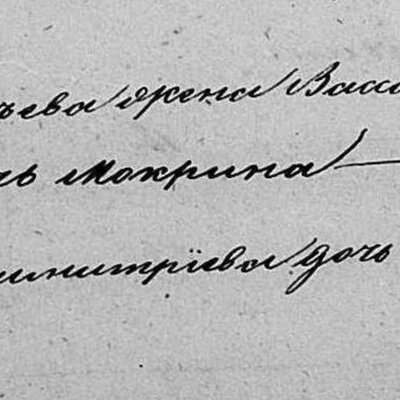 ъева жена Васи
чь Мокрина
имитрiева дочь